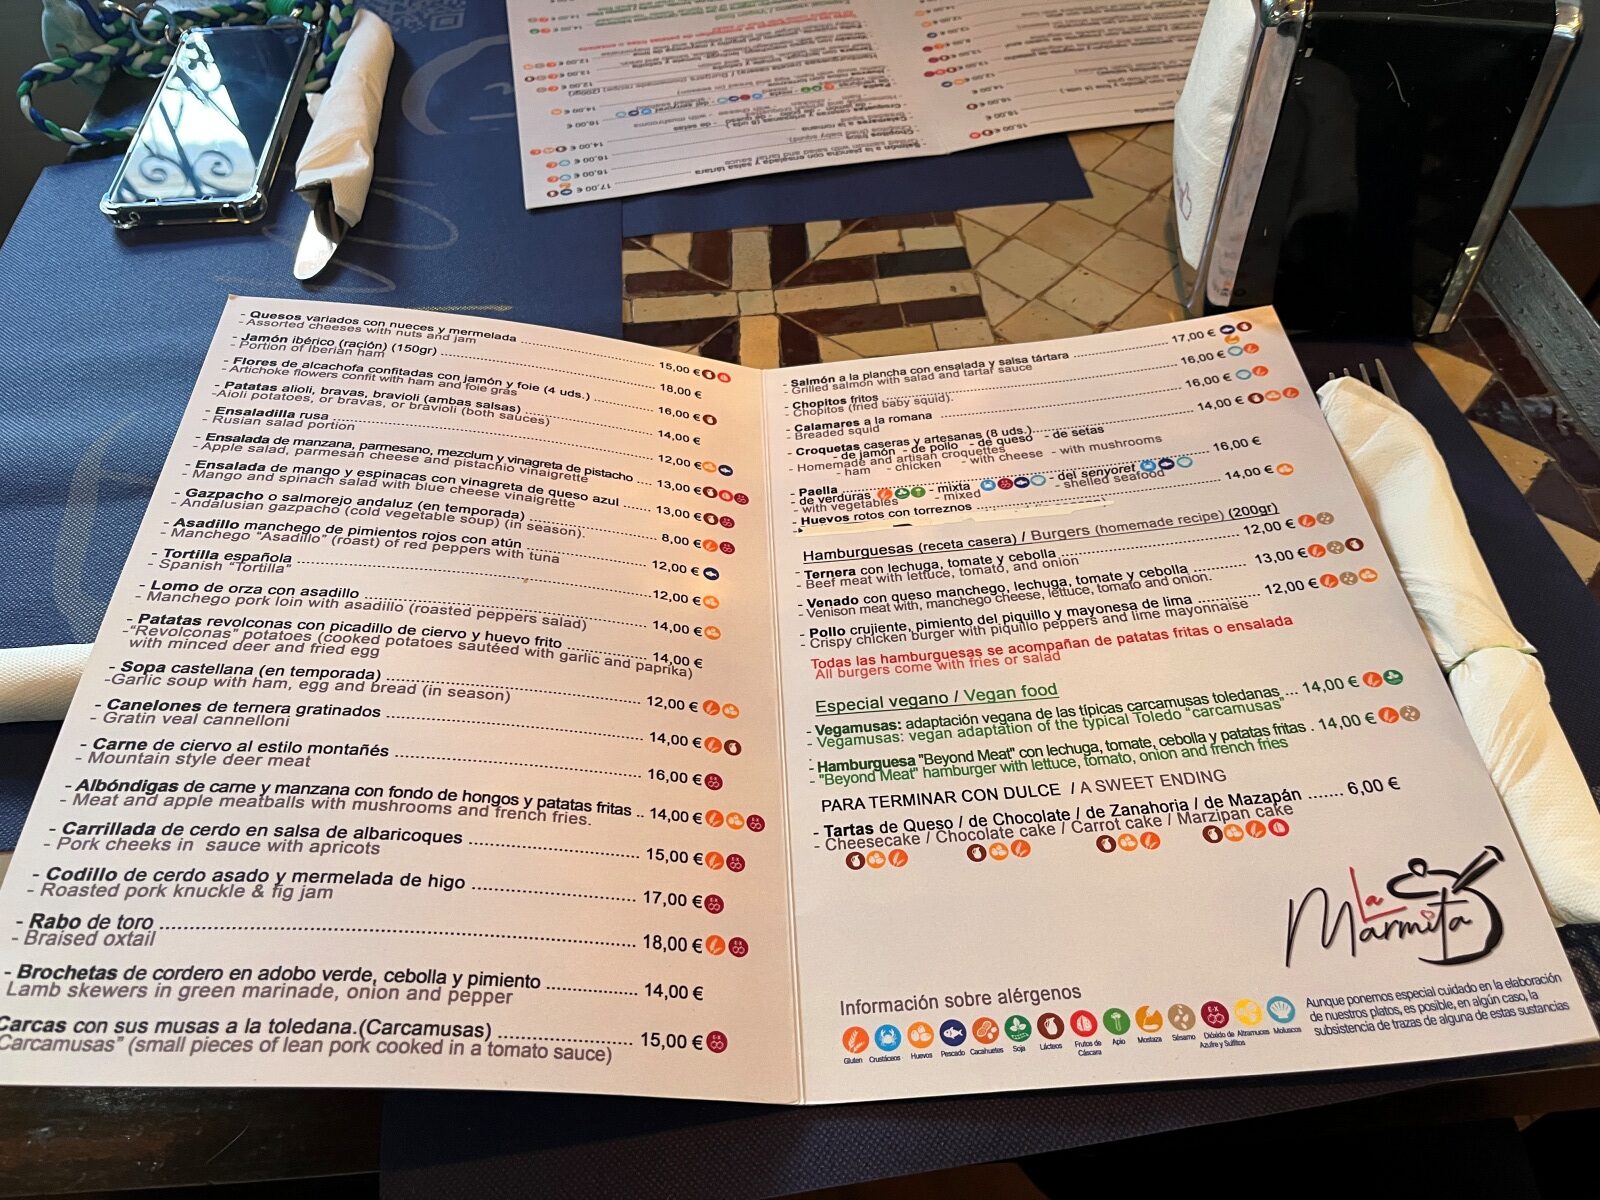 - Quesos variados con nueces y mermelada
- Assorted cheeses with nuts and jam
15,00 €
- Jamón ibérico (ración) (150gr)
- Portion of Iberian ham
18,00 €
- Flores de alcachofa confitadas con jamón y foie (4 uds.)
- Artichoke flowers confit with ham and foie gras
16,00 €
- Patatas alioli, bravas, bravioli (ambas salsas)
- Aioli potatoes, or bravas, or bravioli (both sauces)
14,00 €
- Ensaladilla rusa
- Rusian salad portion
12,00 €
- Ensalada de manzana, parmesano, mezclum y vinagreta de pistacho
- Apple salad, parmesan cheese and pistachio vinaigrette
13,00 €
- Ensalada de mango y espinacas con vinagreta de queso azul
- Mango and spinach salad with blue cheese vinaigrette
13,00 €
- Gazpacho o salmorejo andaluz (en temporada)
- Andalusian gazpacho (cold vegetable soup) (in season).
8,00 €
- Asadillo manchego de pimientos rojos con atún
- Manchego "Asadillo" (roast) of red peppers with tuna
12,00 €
- Tortilla española
- Spanish "Tortilla"
12,00 €
- Lomo de orza con asadillo
- Manchego pork loin with asadillo (roasted peppers salad)
14,00 €
- Patatas revolconas con picadillo de ciervo y huevo frito
14,00 €
-"Revolconas" potatoes (cooked potatoes sautéed with garlic and paprika)
with minced deer and fried egg
- Sopa castellana (en temporada)
-Garlic soup with ham, egg and bread (in season)
12,00 €
- Canelones de ternera gratinados
- Gratin veal cannelloni
14,00 €
- Carne de ciervo al estilo montañés
- Mountain style deer meat
16,00 €
- Albóndigas de carne y manzana con fondo de hongos y patatas fritas .. 14,00 €
- Meat and apple meatballs with mushrooms and french fries.
- Carrillada de cerdo en salsa de albaricoques
- Pork cheeks in sauce with apricots
15,00 €
- Codillo de cerdo asado y mermelada de higo
- Roasted pork knuckle & fig jam
17,00 €
- Rabo de toro
- Braised oxtail
18,00 €
- Brochetas de cordero en adobo verde, cebolla y pimiento
Lamb skewers in green marinade, onion and pepper
14,00 €
Carcas con sus musas a la toledana.(Carcamusas)
Carcamusas" (small pieces of lean pork cooked in a tomato sauce)
15,00 €
- Salmón a la plancha con ensalada y salsa tártara
17,00 €
- Grilled salmon with salad and tartar sauce
- Chopitos fritos
16,00 €
- Chopitos (fried baby squid).
- Calamares a la romana
16,00 €
- Breaded squid
- Croquetas caseras y artesanas (8 uds.)
14,00 €
- de jamón - de pollo - de queso - de setas
- Homemade and artisan croquettes
- ham - chicken - with cheese - with mushrooms
- Paella
16,00 €
- de verduras - mixta - del senyoret
- with vegetables - mixed - shelled seafood
- Huevos rotos con torreznos
14,00 €
Hamburguesas (receta casera) / Burgers (homemade recipe) (200gr)
- Ternera con lechuga, tomate y cebolla
12,00 €
- Beef meat with lettuce, tomato, and onion
- Venado con queso manchego, lechuga, tomate y cebolla
13,00 €
- Venison meat with, manchego cheese, lettuce, tomato and onion.
- Pollo crujiente, pimiento del piquillo y mayonesa de lima
12,00 €
- Crispy chicken burger with piquillo peppers and lime mayonnaise
Todas las hamburguesas se acompañan de patatas fritas o ensalada
All burgers come with fries or salad
Especial vegano / Vegan food
- Vegamusas: adaptación vegana de las típicas carcamusas toledanas ... 14,00 €
- Vegamusas: vegan adaptation of the typical Toledo "carcamusas"
- Hamburguesa "Beyond Meat" con lechuga, tomate, cebolla y patatas fritas . 14,00 €
- "Beyond Meat" hamburger with lettuce, tomato, onion and french fries
PARA TERMINAR CON DULCE / A SWEET ENDING
- Tartas de Queso / de Chocolate / de Zanahoria / de Mazapán ....... 6,00 €
- Cheesecake / Chocolate cake / Carrot cake / Marzipan cake
La Marmita
Información sobre alérgenos
Gluten Crustáceos Huevos Pescado Cacahuetes Soja Lácteos Frutos de Cáscara Apio Mostaza Sésamo Dióxido de Azufre y Sulfitos Altramuces Moluscos
Aunque ponemos especial cuidado en la elaboración
de nuestros platos, es posible, en algún caso, la
subsistencia de trazas de alguna de estas sustancias